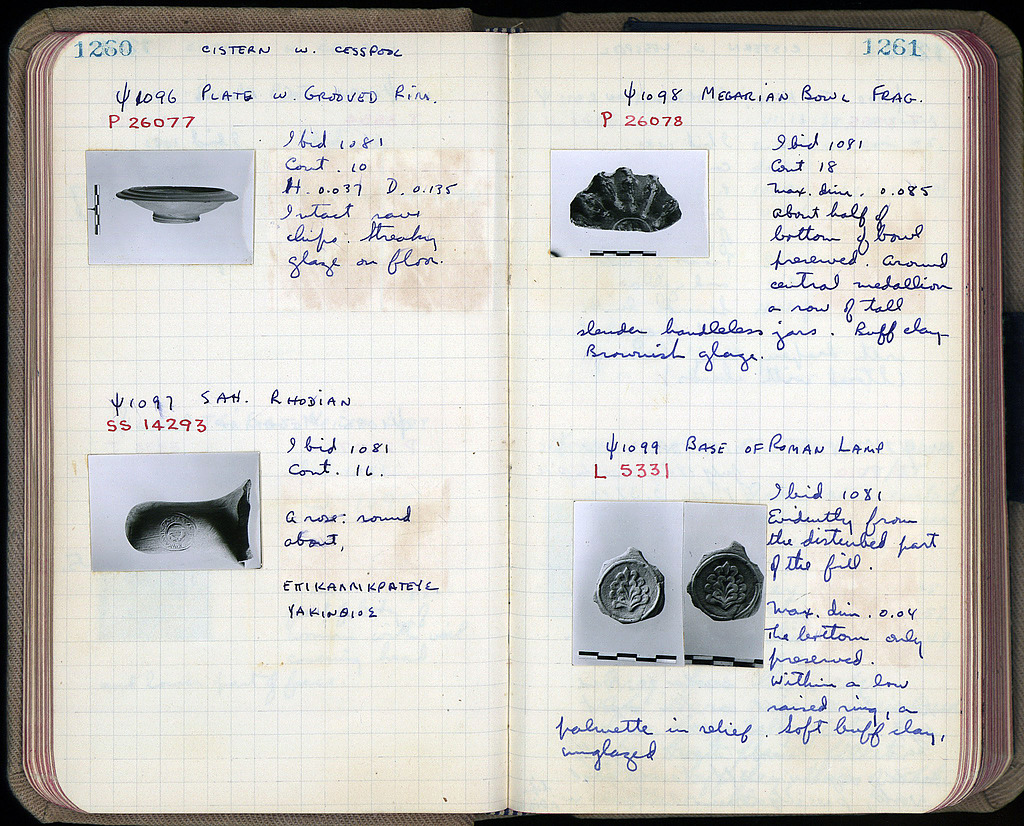 1260
CISTERN W. CESSPOOL
Ψ1096 PLATE W. GROOVED RIM.
P 26077
Ibid 1081
Cont. 10
H. 0.037 D. 0.135
Intact save
chips. Streaky
glaze on floor.
Ψ1097 SAH. RHODIAN
SS 14293
Ibid 1081
Cont. 16.
A rose: round
about,
ΕΠΙΚΑΛΛΙΚΡΑΤΕΥΣ
ΥΑΚΙΝΘΙΟΣ
1261
Ψ1098 MEGARIAN BOWL FRAG.
P 26078
Ibid 1081
Cont 18
Max. dim. 0.085
About half of
bottom of bowl
preserved. Around
central medallion
a row of tall
slender handleless jars. Buff clay
Brownish glaze.
Ψ1099 BASE OF ROMAN LAMP
L 5331
Ibid 1081
Evidently from
the disturbed part
of the fill.
Max. dim. 0.04
The bottom only
preserved.
Within a low
raised ring, a
palmette in relief. Soft buff clay,
unglazed